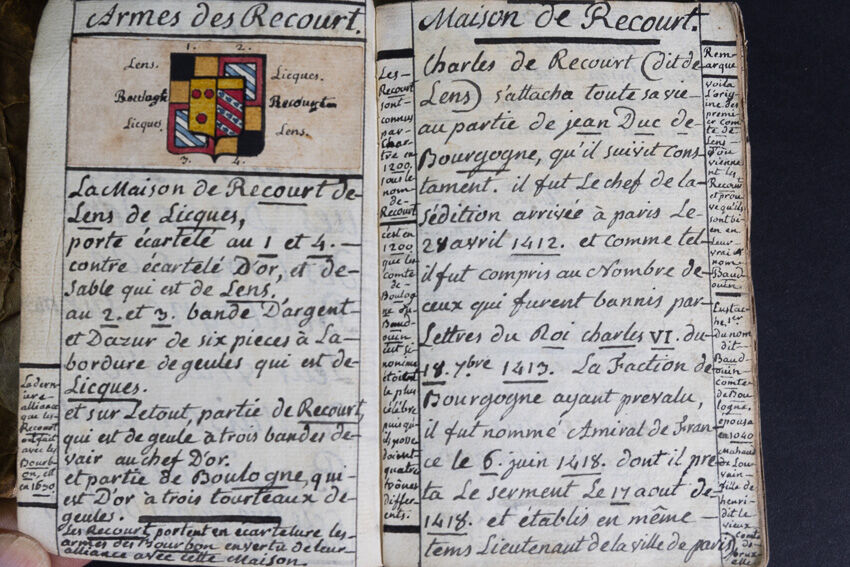 Armes des Recourt.
1. 2.
Lens. Licques.
Boulogne Recourt
Licques Lens.
3. 4.
La Maison de Recourt de
Lens de Licques,
porte écartelé au 1 et 4.
contre écartelé D'or, et de
sable qui est de Lens.
au 2. et 3. bande D'argent
et Dazur de six pieces à La
bordure de geules qui est de
Licques.
et sur Letout, partie de Recourt,
qui est de geule à trois bandes de
vair au chef D'or.
et partie de Boulogne, qui
est D'or à trois tourteaux de
geules.
Les Recourt portent en écartelure les
armes des Bourbon en vertu de leur
alliance avec cette Maison.
La dern
iere
alliance
que les
Recourt
ont fait
avec les
Bourb
on, est
en 1630.
Maison de Recourt.
Charles de Recourt (dit de
Lens) s'attacha toute sa vie
au partie de jean Duc de
Bourgogne, qu'il suivit cons
tament. il fut Le chef de la
sédition arrivée à paris Le
28 avril 1412. et comme tel
il fut compris au Nombre de
ceux qui furent bannis par
Lettres du Roi charles VI. du
18. 7bre 1413. La Faction de
Bourgogne ayant prevalu,
il fut nommé Amiral de Fran
ce le 6. juin 1418. dont il pre
ta Le serment Le 17 aout de
1418. et établis en même
tems Lieutenant de la ville de paris
Les
Recourt
sont
connus
par
Char
tre en
1200.
sous le
nom
de
Recourt
c'est en
1200
que les
comte
de
Boulog
ne du
Baud
ouin
nonime
étoient
le plus
célébre
puis qu'
doivent
quatre
differ
ents.
Rem
arque
voila
L'orig
ine des
premi
er com
te de
Lens
D'ou
vienne
nt les
Recourt
et prou
ve qu'ils
sont bi
en en
leur
vrai
nom
Baud
ouin.
Eustac
he 1er
du nom
dit
Baud
ouin
comte
de Bou
logne,
epousa
en 1040
Mahaut
de Lou
vain
fille de
henri
dit le
vieux
comte
de
brux
elle